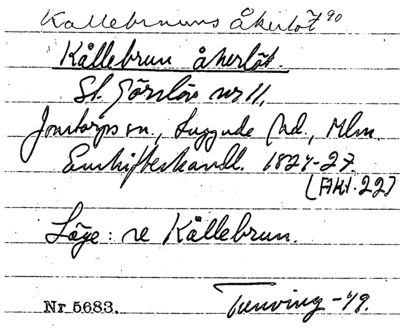 Kållebruns åkerlöt 90
Kållebrun åkerlöt.
St. Görslöv nr 11,
Jonstorps sn., Luggude hd., Mlm.
Enskifteshandl. 1824-27.
(Akt. 22)
Läge: se Kållebrun.
Nr 5683. Tenving -48.